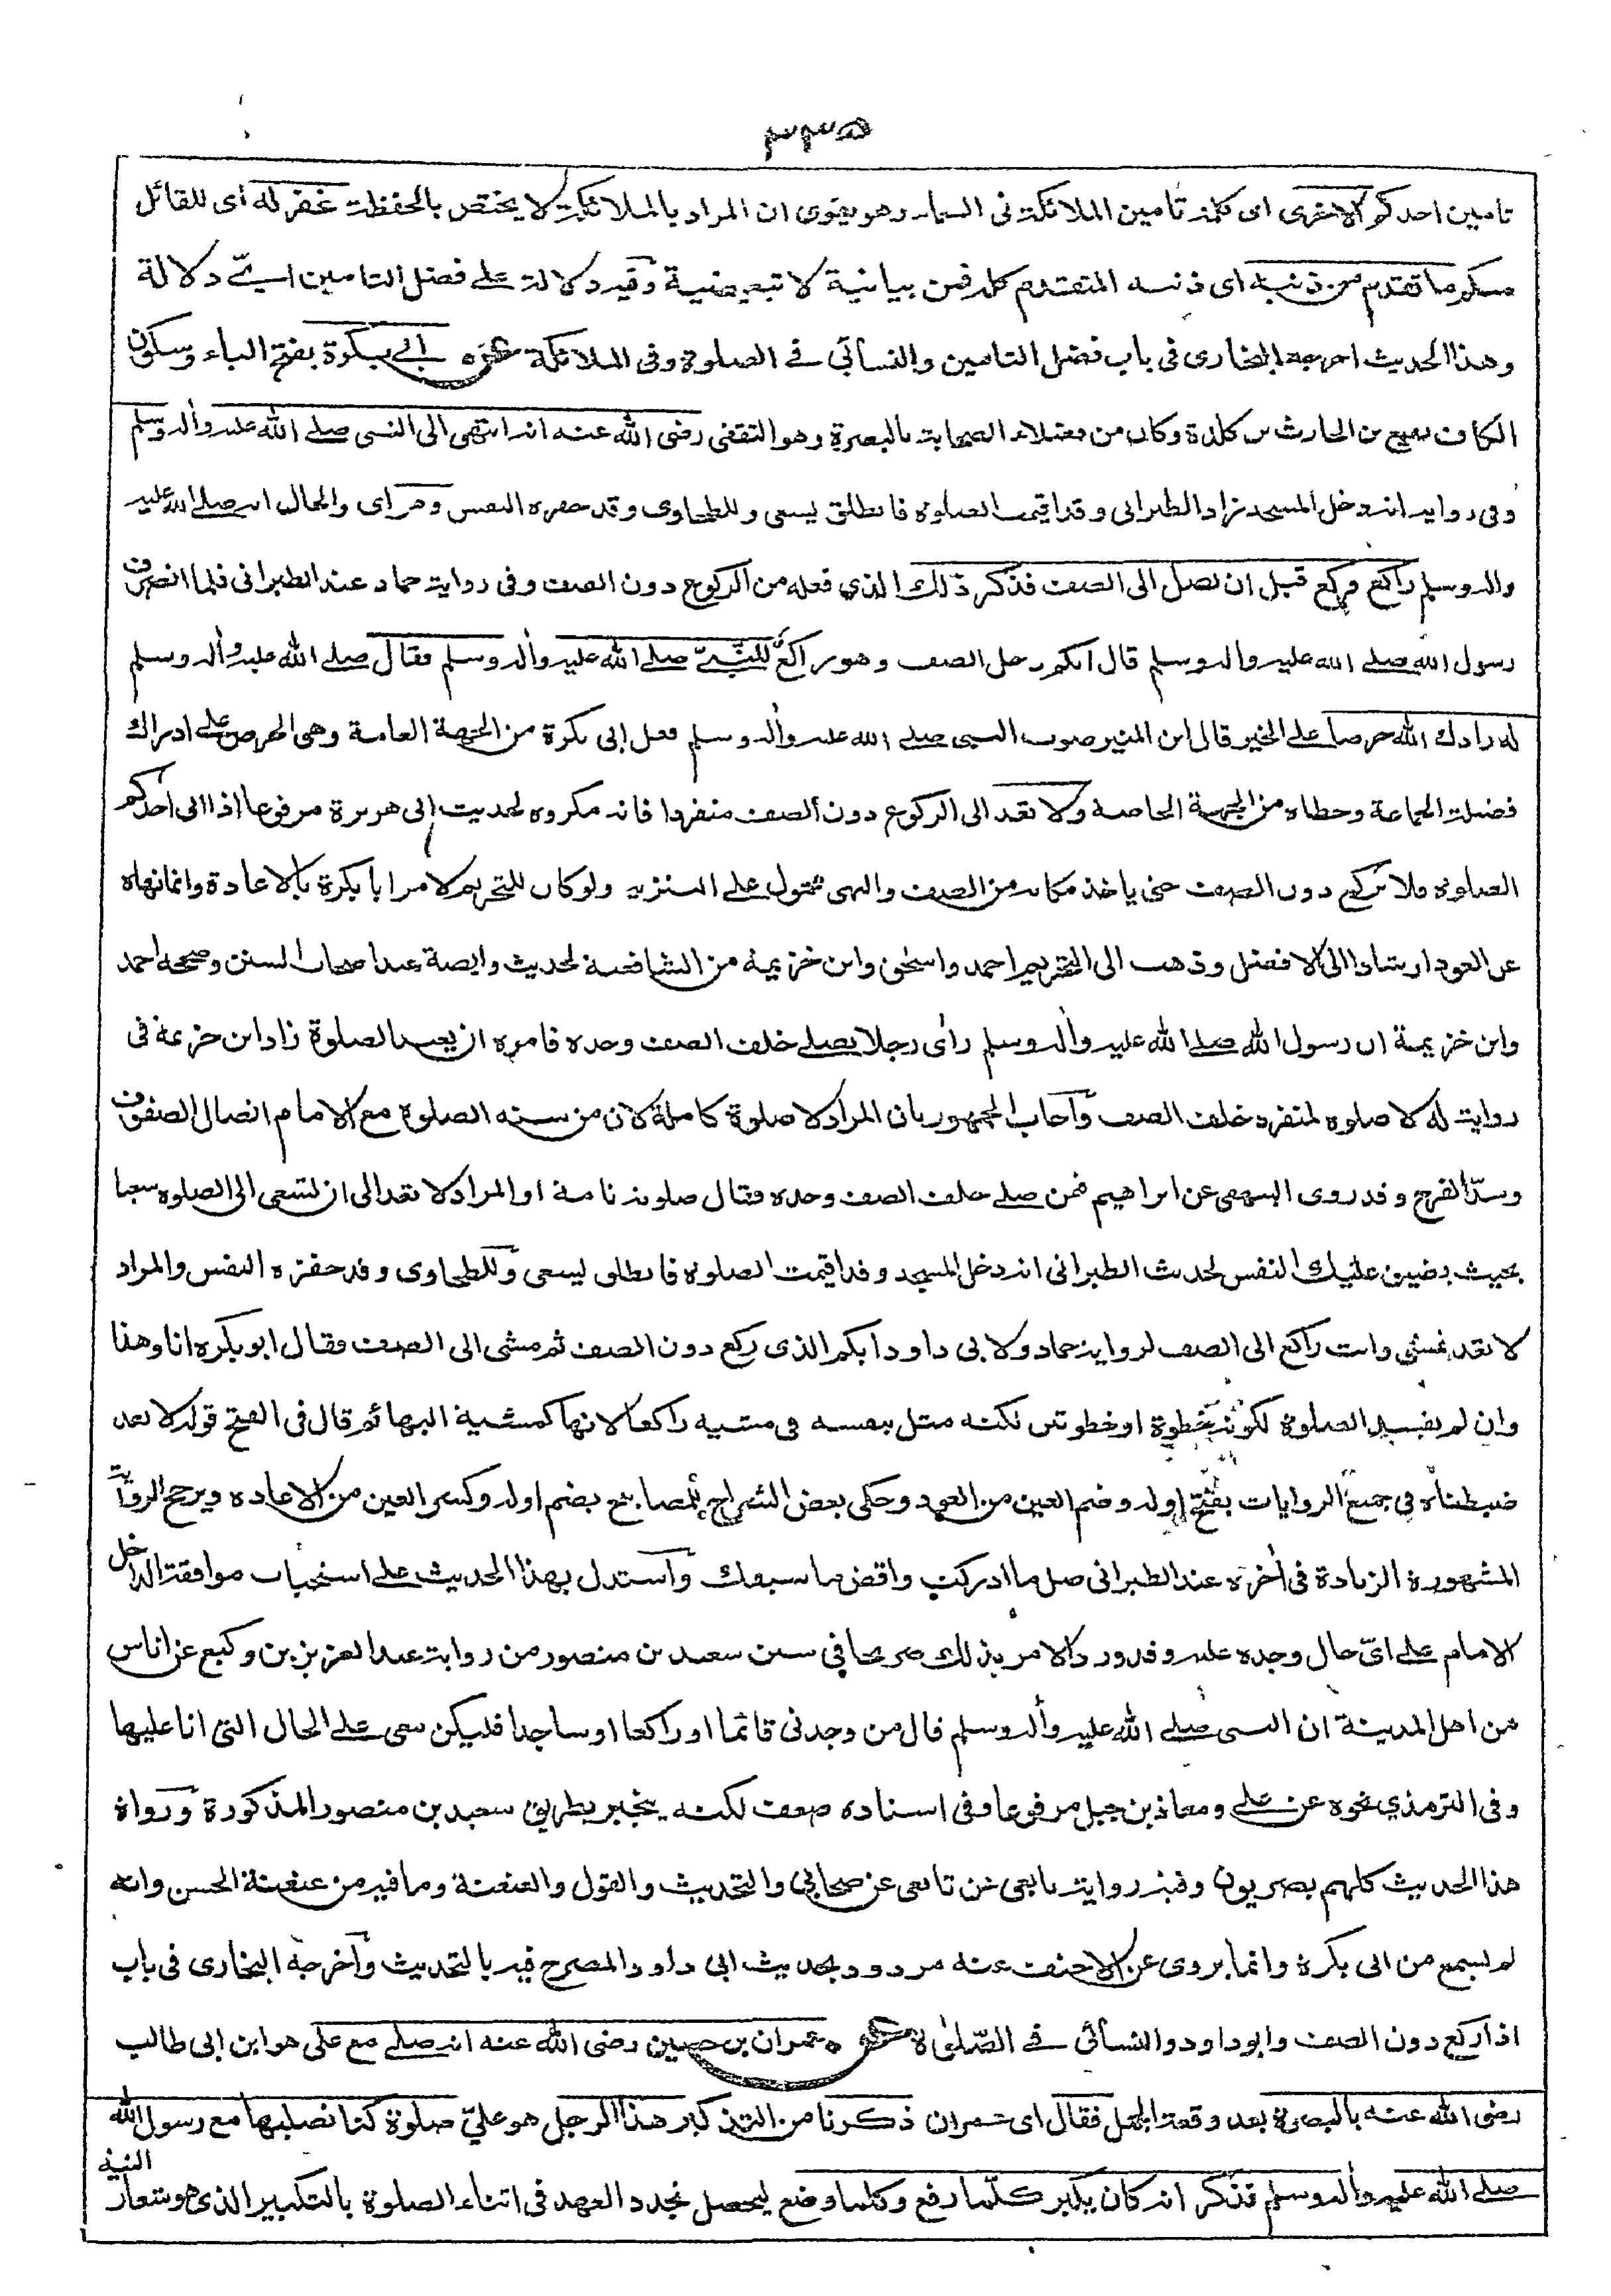 ٣٣٥
تامين احدكم الاخرى اى كلمة تامين الملائكة فى السماء وهو يقوى ان المراد بالملائكة لا يختص بالحفظة غفر له اى للقائل
منكم ما تقدم من ذنبه اى ذنبه المتقدم كله فمن بيانية لا تبعيضية وفيه دلالة على فضل التامين دلالة
وهذا الحديث اخرجه البخارى فى باب فضل التامين والنسائى فى الصلوة وفى الملائكة عن ابى بكرة بفتح الباء وسكون
الكاف نفيع بن الحارث بن كلدة وكان من فضلاء الصحابة بالبصرة وهو الثقفى رضى الله عنه انه انتهى الى النبى صلى الله عليه وأله وسلم
وفى رواية انه دخل المسجد زاد الطبرانى وقد اقيمت الصلوة فانطلق يسعى وللطحاوى وقد حفزه النفس وهو اى والحال انه صلى الله عليه
واله وسلم راكع فركع قبل ان يصل الى الصف فذكر ذلك الذي فعله من الركوع دون الصف وفى رواية حماد عند الطبرانى فلما انصرف
رسول الله صلى الله عليه واله وسلم قال ايكم دخل الصف وهو راكع للنبى صلى الله عليه وأله وسلم فقال صلى الله عليه وأله وسلم
له زادك الله حرصا على الخير قال ابن المنير صوب النبى صلى الله عليه وأله وسلم فعل ابى بكرة من الجهة العامة وهى الحرص على ادراك
فضلة الجماعة وخطاه من الجهة الخاصة ولا تعد الى الركوع دون الصف منفردا فانه مكروه لحديث ابى هريرة مرفوعا اذا اتى احدكم
الصلوة فلا يركع دون الصف حتى ياخذ مكانه من الصف والنهى محمول على التنزيه ولو كان للتحريم لامر ابا بكرة بالاعادة وانما نهاه
عن العود ارشادا الى الافضل وذهب الى التحريم احمد واسحق وابن خزيمة من الشافعية لحديث وابصة عند اصحاب السنن وصححه احمد
وابن خزيمة ان رسول الله صلى الله عليه وأله وسلم رأى رجلا يصلى خلف الصف وحده فامره ان يعيد الصلوة زاد ابن خزيمة فى
رواية له لا صلوة لمنفرد خلف الصف وأجاب الجمهور بان المراد لا صلوة كاملة لان من سنة الصلوة مع الامام اتصال الصفوف
وسدّ الفرج وقد روى البيهقى عن ابراهيم فمن صلى خلف الصف وحده فقال صلوته تامة او المراد لا تعد الى ان تسعى الى الصلوة سعيا
بحيث يضيق عليك النفس لحديث الطبرانى انه دخل المسجد وقد اقيمت الصلوة فانطلق ليسعى وللطحاوى وقد حفزه النفس والمراد
لا تعد تمشى وانت راكع الى الصف لرواية حماد ولابى داود ايكم الذى ركع دون الصف ثم مشى الى الصف فقال ابو بكرة انا وهذا
وان لم يفسد الصلوة لكونه خطوة او خطوتين لكنه مثل بنفسه فى مشيه راكعا لانها كمشية البهائم قال فى الفتح قوله لا تعد
ضبطناه فى جميع الروايات بفتح اوله وضم العين من العود وحكى بعض الشراح للمصابيح بضم اوله وكسر العين من الاعادة ويرجح الرواية
المشهورة الزيادة فى أخره عند الطبرانى صل ما ادركت واقض ما سبقك وأستدل بهذا الحديث على استحباب موافقة الداخل
الامام على اىّ حال وجده عليه وقد ورد الامر بذلك صريحا فى سنن سعيد بن منصور من رواية عبد العزيز بن وكيع عن اناس
من اهل المدينة ان النبى صلى الله عليه وأله وسلم قال من وجدنى قائما او راكعا او ساجدا فليكن معى على الحال التى انا عليها
وفى الترمذي نحوه عن على ومعاذ بن جبل مرفوعا وفى اسناده ضعف لكنه ينجبر بطريق سعيد بن منصور المذكورة ورواة
هذا الحديث كلهم بصريون وفيه رواية تابعى عن تابعى عن صحابي والتحديث والقول والعنعنة وما فيه من عنعنة الحسن وانه
لم يسمع من ابى بكرة وانما يروى عن الاحنف عنه مردود بحديث ابى داود المصرح فيه بالتحديث وأخرجه البخارى فى باب
اذا ركع دون الصف وابو داود والنسائى فى الصّلوٰة عن عمران بن حصين رضى الله عنه انه صلى مع على هو ابن ابى طالب
رضى الله عنه بالبصرة بعد وقعة الجمل فقال اى عمران ذكرنا من التذكير هذا الرجل هو عليّ صلوة كنا نصليها مع رسول الله
صلى الله عليه وأله وسلم فذكر انه كان يكبر كلّما رفع وكلما وضع ليحصل تجدد العهد فى اثناء الصلوة بالتكبير الذى هو شعار النية